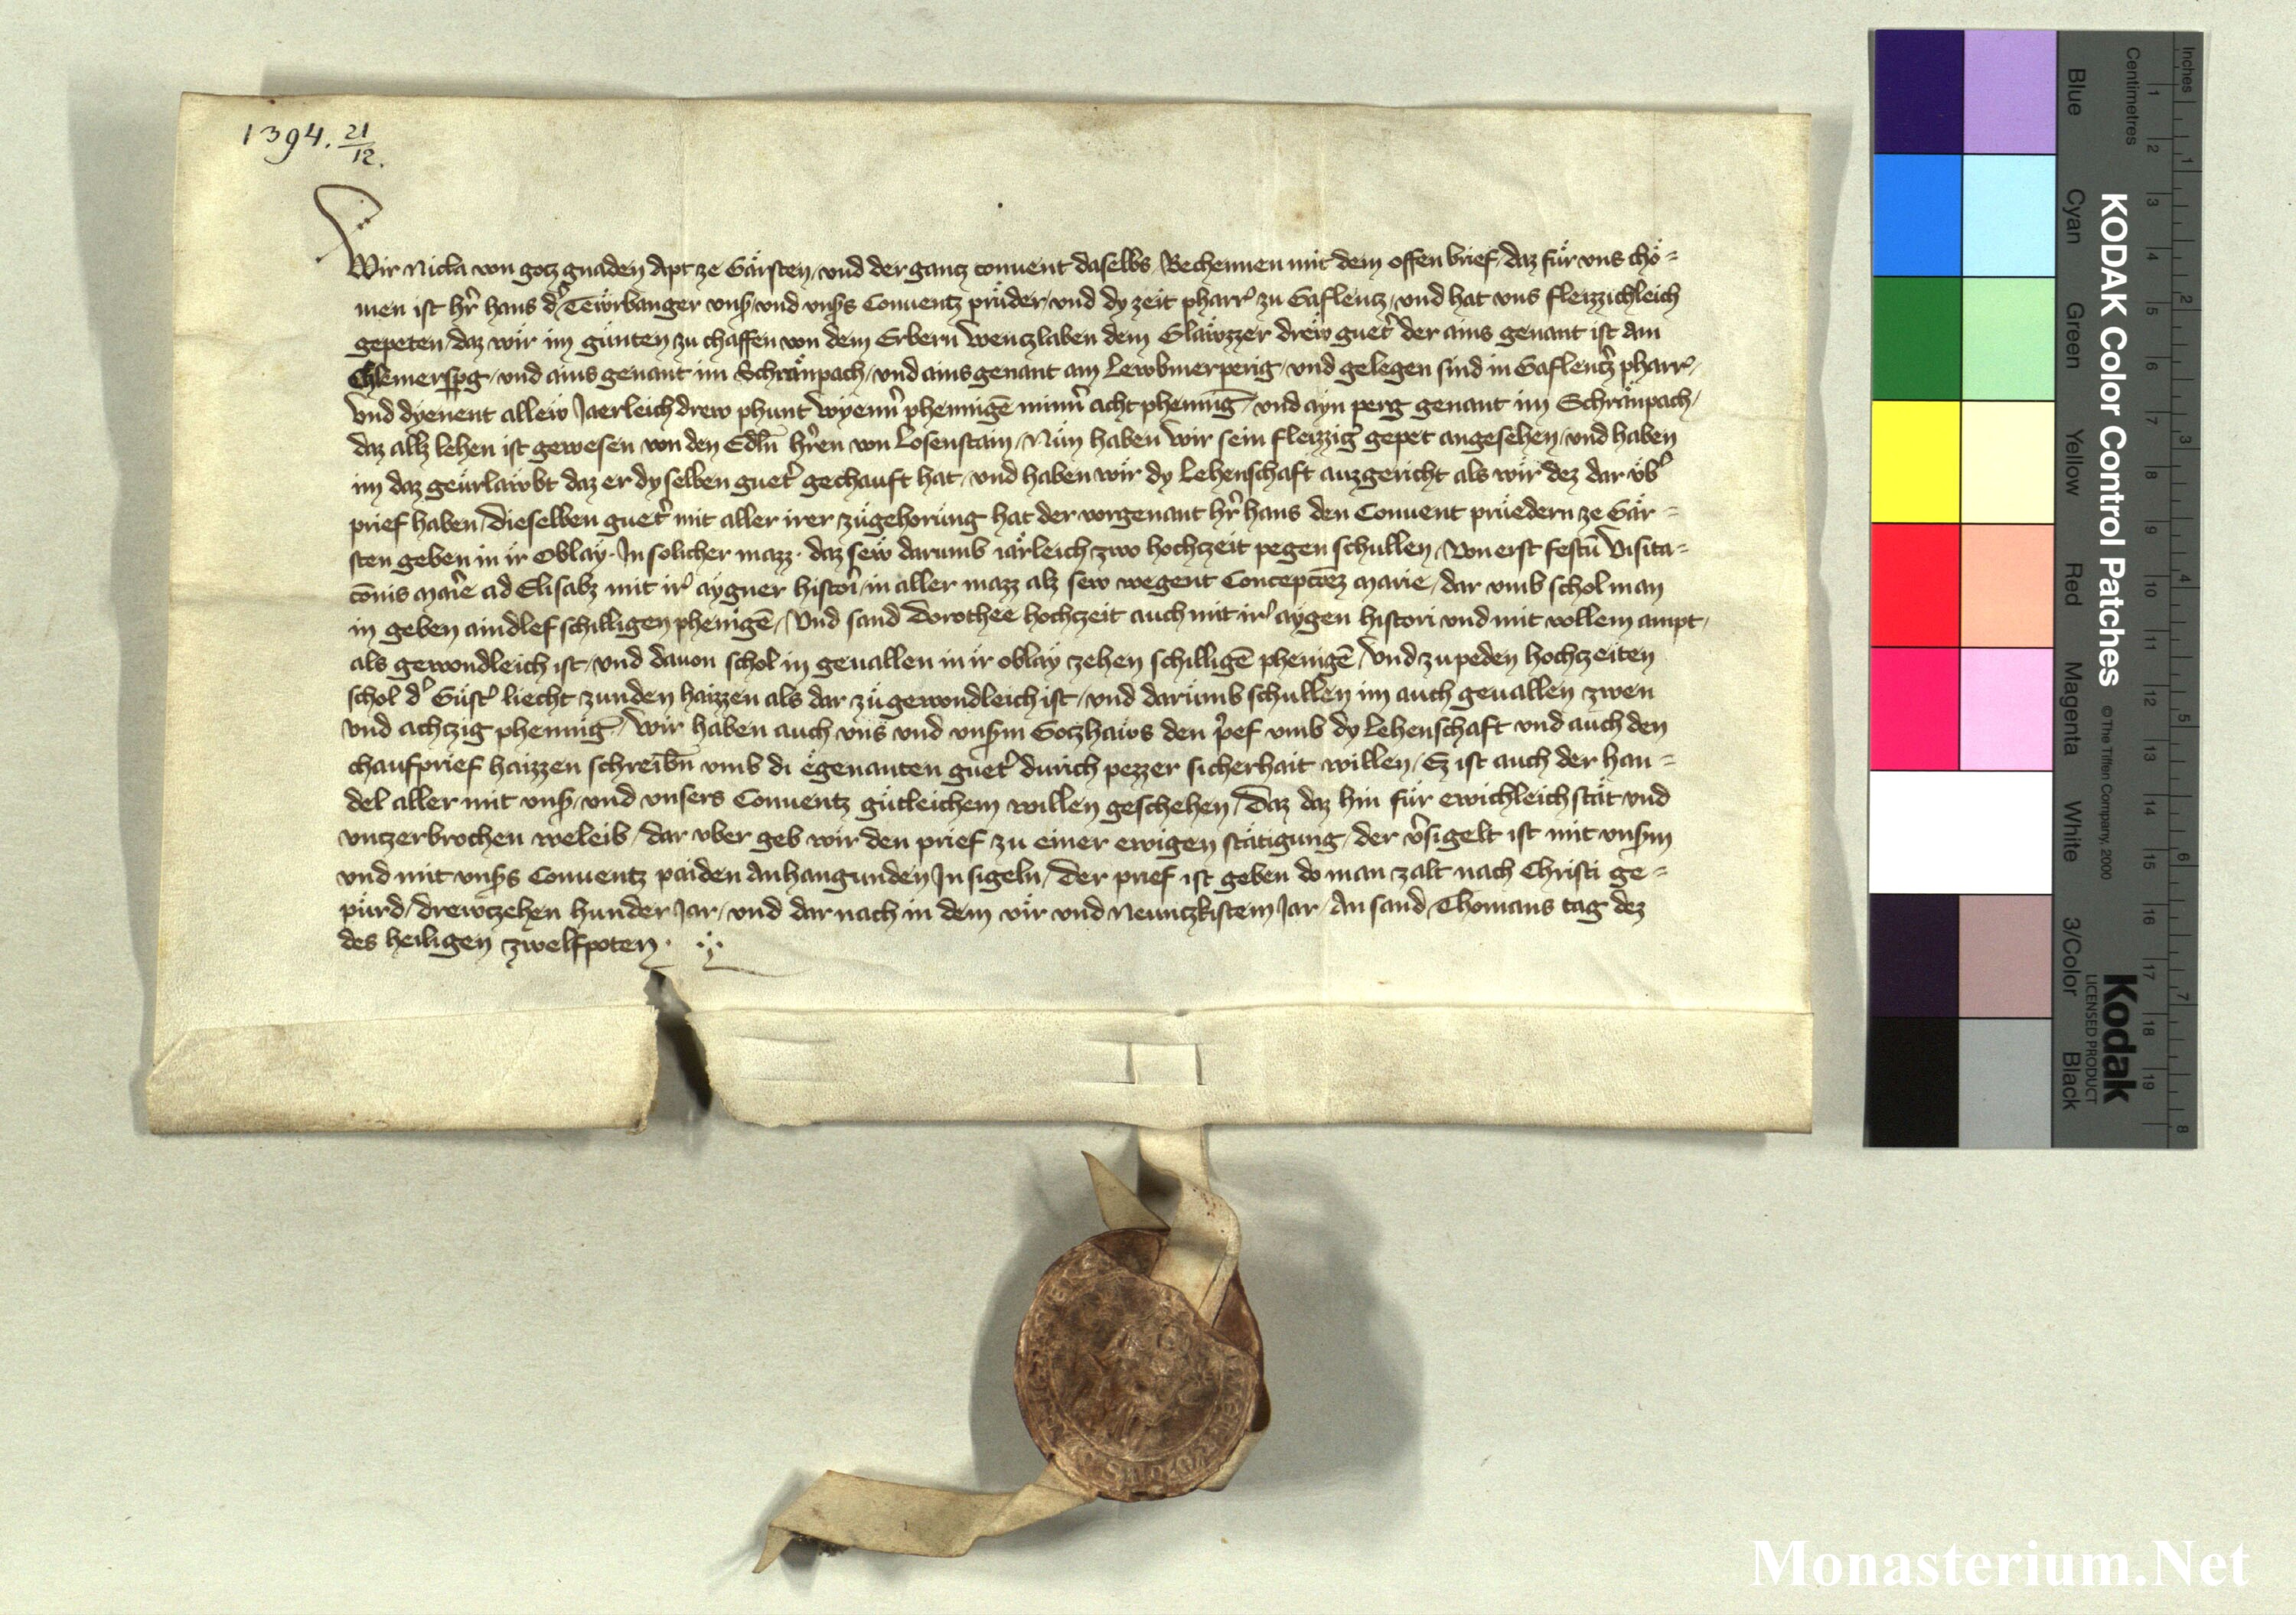 1394. 21/12.
Wir Nicla von gotz gnaden Apt ze Gärsten / vnd der gancz conuent daselbs / Bechennen mit dem offen brief / daz für vns chö=
men ist hr̄ hans d' Tewrbanger vnſs / vnd vnſs Conuentz prüder / vnd dy zeit pharr' zu Gaflencz / vnd hat vns fleizzichleich
gepeten / daz wir im günten zu chaffen von dem Erbern wenczlaben dem Glawzzer drew guet' der ains genant ist am
Chlemerſpg / vnd ains genant im Schränpach / vnd ains genant am Lewbmerperig / vnd gelegen sind in Gaflencz' pharr' /
vnd dyenent allew Jaerleich drew phunt wyenn' phennigē minn' acht phennig / vnd ayn perg genant im Schränpach /
daz allz lehen ist gewesen von den Edln̄ hr̄en von Losenstain / Nün haben wir sein fleizzig' gepet angesehen / vnd haben
im daz geürlawbt daz er dy selben guet' gechauft hat / vnd haben wir dy Lehenschaft auzgericht als wir dez dar üb'
prief haben / dieselben guet' mit aller irer zügehorüng hat der vorgenant hr̄ hans den Conuent prüedern ze Gär=
sten geben in ir Oblay · In solicher mazz · daz sew darumb iärleich zwo hochzeit pegen schullen / Von erst festū Visita=
cōnis Mar'e ad Elisabz mit ir' aygner histori / in aller mazz alz sew wegent Concepcōēz marie / dar vmb schol man
in geben aindlef schilligen phenigē / Vnd sand Dorothee hochzeit auch mit ir' aygen histori vnd mit vollem ampt /
als gewondleich ist / vnd dauon schol in geuallen in ir oblay zehen schilligē phenigē / vnd zu peden hochzeiten
schol d' Güst' liecht zunden haizzen als dar zü gewondleich ist / vnd darümb schullen im auch geuallen zwen
vnd achzig phennig / Wir haben auch vns vnd vnſm Gotzhaws den p'ef vmb dy Lehenschaft vnd auch den
chaufprief haizzen schreibn̄ vmb di egenanten guet' durich pezzer sicherhait willen / Ez ist auch der han=
del aller mit vnſs / vnd vnsers Conuentz gütleichem willen geschehen / Daz daz hin für ewichleich stät vnd
vnzerbrochen weleib / dar vber geb wir den prief zu einer ewigen stätigung / der v'sigelt ist mit vnſm
vnd mit vnſs Conuentz paiden Anhangunden Jnsigeln / Der prief ist geben do man zalt nach Christi ge=
pürd / drewczehen hunder Jar / vnd dar nach in dem vir vnd Neunczkistem Jar / An sand Thomans tag dez
des heiligen zwelfpoten ·
KODAK Color Control Patches
© The Tiffen Company, 2000
Kodak
LICENSED PRODUCT
Inches
Centimetres
Blue
Cyan
Green
Yellow
Red
Magenta
White
3/Color
Black
1 2 3 4 5 6 7 8 9 10 11 12 13 14 15 16 17 18 19
1 2 3 4 5 6 7 8
Monasterium.Net